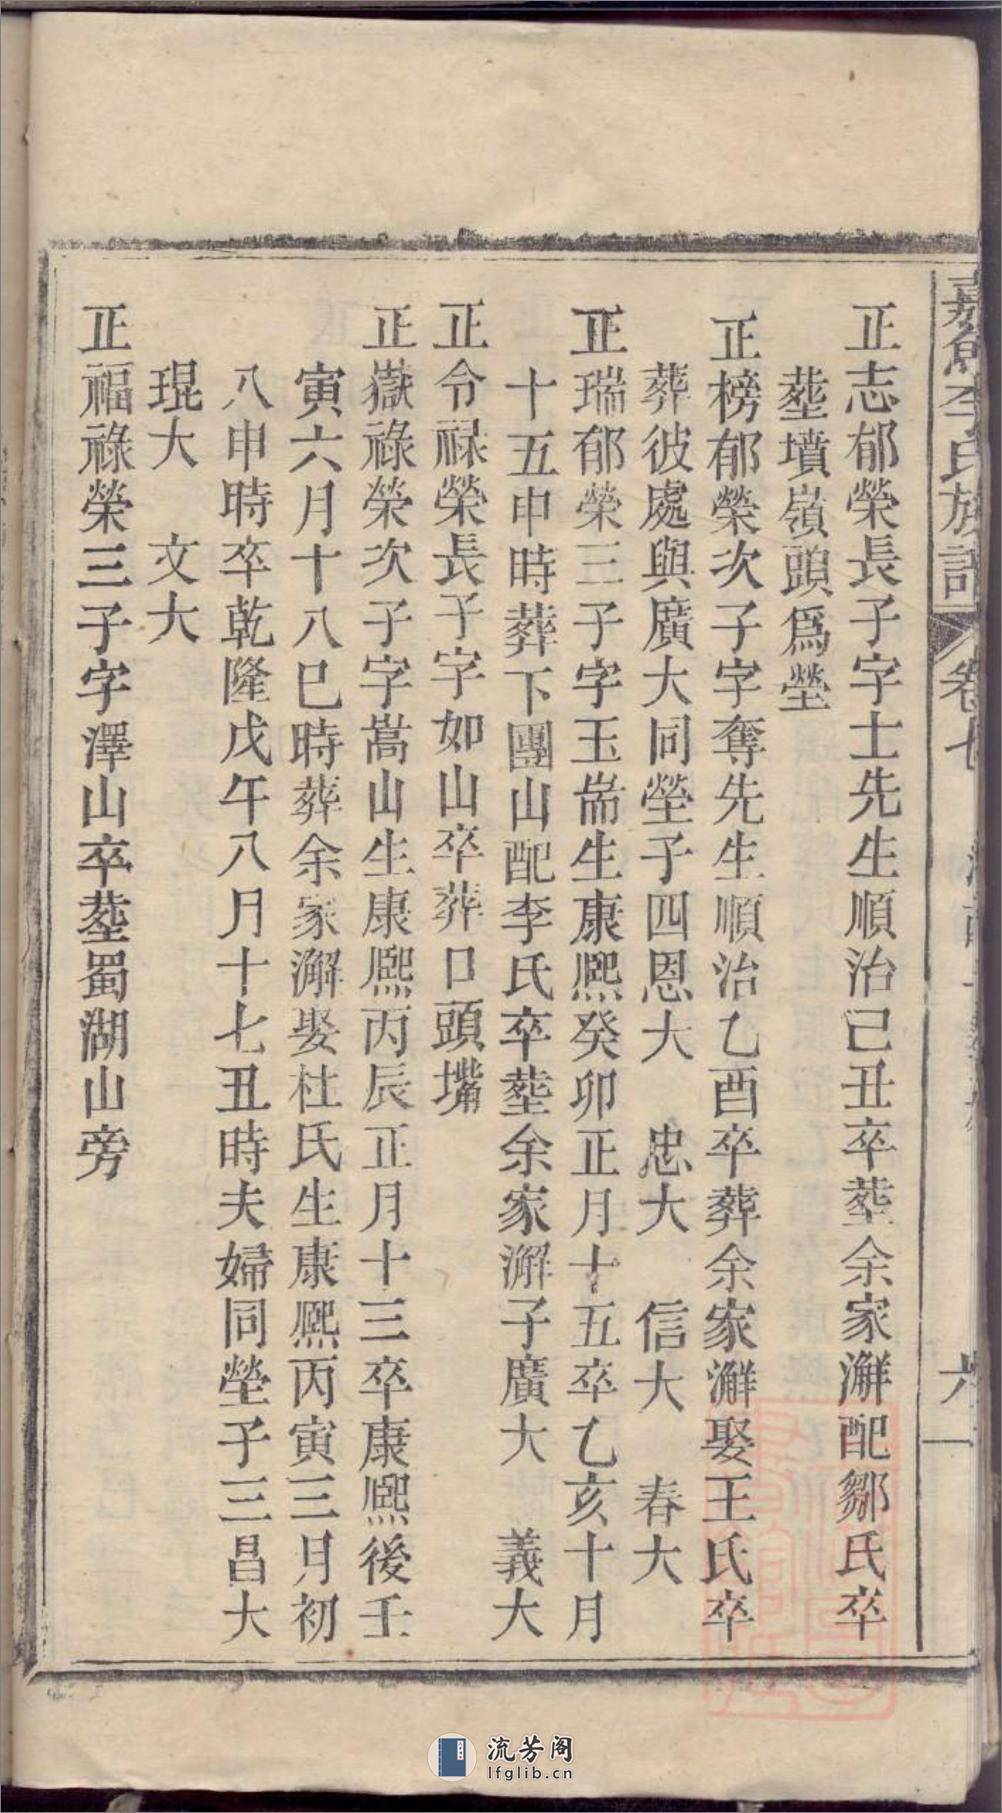 嘉魚李氏族譜 卷七 六一
正志郁榮長子字士先生順治己丑卒塟余家澥配鄒氏卒
塟墳嶺頭爲塋
正榜郁榮次子字奪先生順治乙酉卒葬余家澥娶王氏卒
葬彼處與廣大同塋子四恩大 忠大 信大 春大
正瑞郁榮三子字玉耑生康熙癸卯正月十五卒乙亥十月
十五申時葬下團山配李氏卒塟余家澥子廣大 義大
正令祿榮長子字如山卒葬口頭嘴
正嶽祿榮次子字嵩山生康熙丙辰正月十三卒康熙後壬
寅六月十八巳時葬余家澥娶杜氏生康熙丙寅三月初
八申時卒乾隆戊午八月十七丑時夫婦同塋子三昌大
琨大 文大
正福祿榮三子字澤山卒塟蜀湖山旁
流芳阁
lfglib.cn